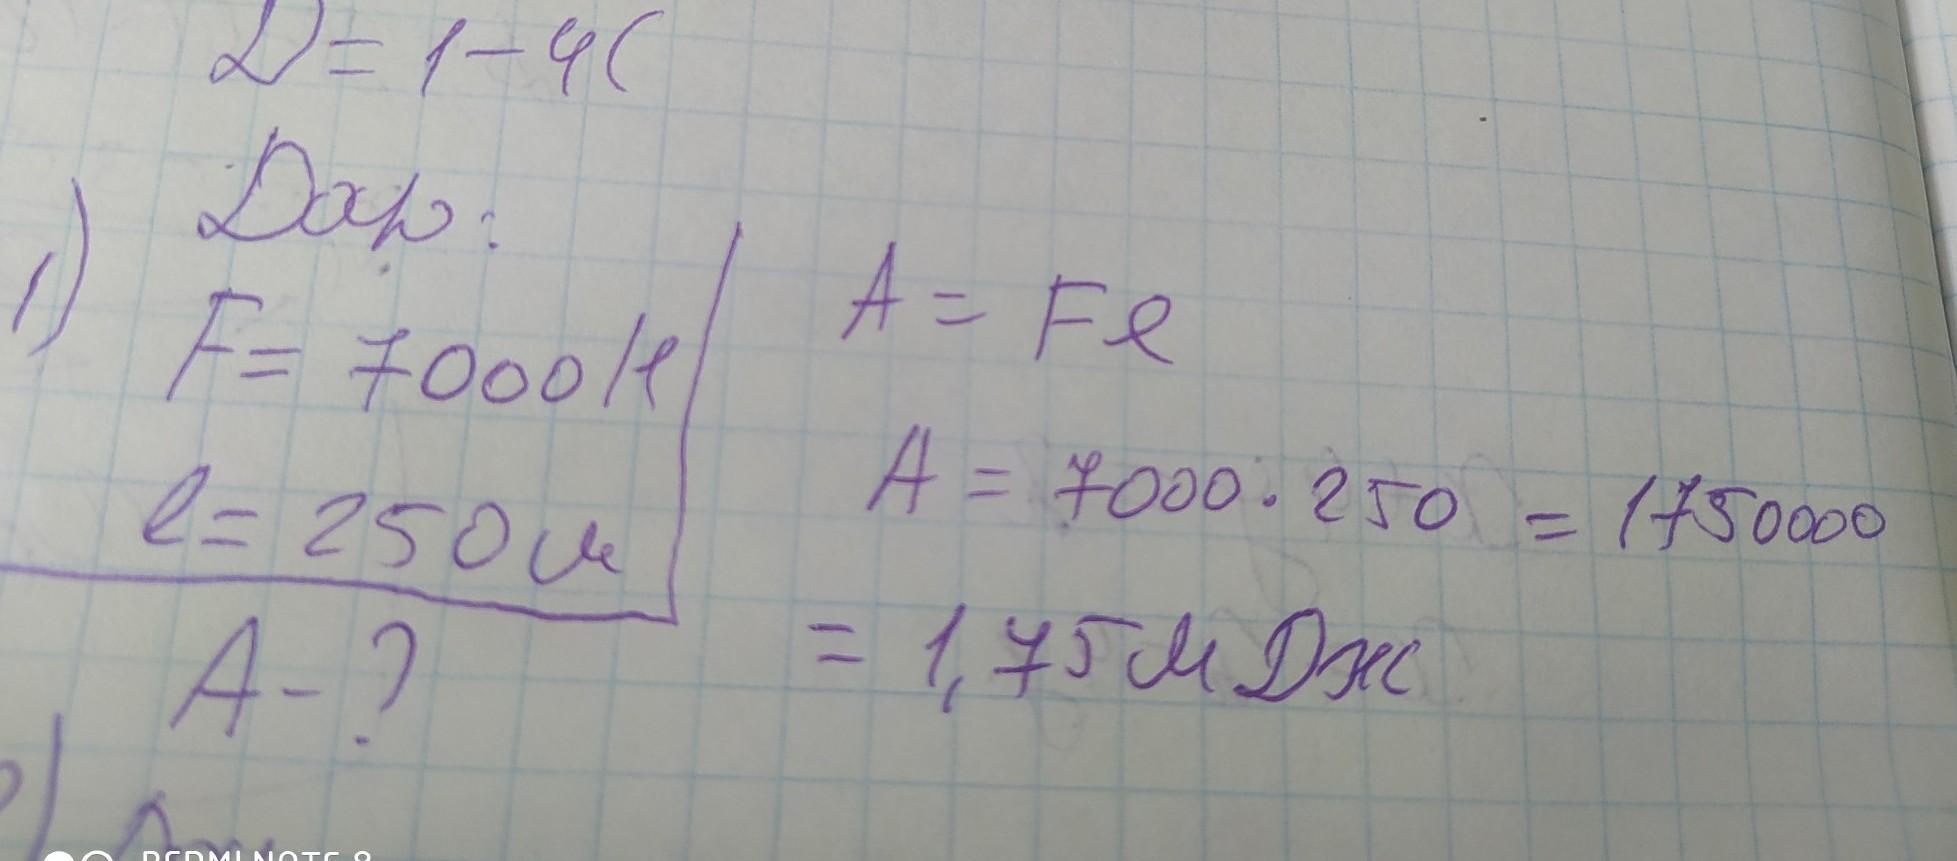 D = 1 - 4(
1) Дано:
F = 7000 Н
l = 250 м
A - ?
A = Fl
A = 7000 · 250 = 1750000
= 1,75 МДж
REDMI NOTE 8